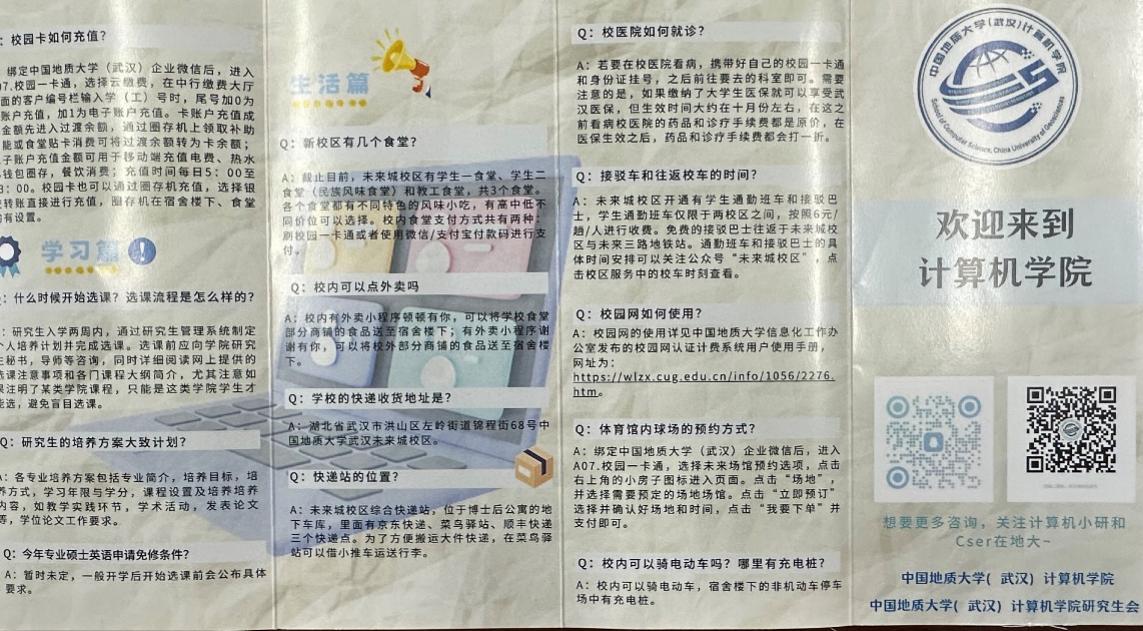 ：校园卡如何充值？
绑定中国地质大学（武汉）企业微信后，进入
07.校园一卡通，选择云缴费，在中行缴费大厅
面的客户编号栏输入学（工）号时，尾号加0为
账户充值，加1为电子账户充值。卡账户充值成
金额先进入过渡余额，通过圈存机上领取补助
能或食堂贴卡消费可将过渡余额转为卡余额；
子账户充值金额可用于移动端充值电费、热水
钱包圈存，餐饮消费；充值时间每日5：00至
3：00。校园卡也可以通过圈存机充值，选择银
转账直接进行充值，圈存机在宿舍楼下、食堂
有设置。
学习篇
：什么时候开始选课？选课流程是怎么样的？
：研究生入学两周内，通过研究生管理系统制定
个人培养计划并完成选课。选课前应向学院研究
生秘书，导师等咨询，同时详细阅读网上提供的
选课注意事项和各门课程大纲简介，尤其注意如
果注明了某类学院课程，只能是这类学院学生才
能选，避免盲目选课。
Q：研究生的培养方案大致计划？
A：各专业培养方案包括专业简介，培养目标，培
养方式，学习年限与学分，课程设置及培养培养
内容，如教学实践环节，学术活动，发表论文
等，学位论文工作要求。
Q：今年专业硕士英语申请免修条件？
A：暂时未定，一般开学后开始选课前会公布具体
要求。
生活篇
Q：新校区有几个食堂？
A：截止目前，未来城校区有学生一食堂、学生二
食堂（民族风味食堂）和教工食堂，共3个食堂。
各个食堂都有不同特色的风味小吃，有高中低不
同价位可以选择。校内食堂支付方式共有两种：
刷校园一卡通或者使用微信/支付宝付款码进行支
付。
Q：校内可以点外卖吗
A：校内有外卖小程序顿顿有你，可以将学校食堂
部分商铺的食品送至宿舍楼下；有外卖小程序谢
谢有你，可以将校外部分商铺的食品送至宿舍楼
下。
Q：学校的快递收货地址是？
A：湖北省武汉市洪山区左岭街道锦程街68号中
国地质大学武汉未来城校区。
Q：快递站的位置？
A：未来城校区综合快递站，位于博士后公寓的地
下车库，里面有京东快递、菜鸟驿站、顺丰快递
三个快递点。为了方便搬运大件快递，在菜鸟驿
站可以借小推车运送行李。
Q：校医院如何就诊？
A：若要在校医院看病，携带好自己的校园一卡通
和身份证挂号，之后前往要去的科室即可。需要
注意的是，如果缴纳了大学生医保就可以享受武
汉医保，但生效时间大约在十月份左右，在这之
前看病校医院的药品和诊疗手续费都是原价，在
医保生效之后，药品和诊疗手续费都会打一折。
Q：接驳车和往返校车的时间？
A：未来城校区开通有学生通勤班车和接驳巴
士，学生通勤班车仅限于两校区之间，按照6元/
趟/人进行收费。免费的接驳巴士往返于未来城校
区与未来三路地铁站。通勤班车和接驳巴士的具
体时间安排可以关注公众号“未来城校区”，点
击校区服务中的校车时刻查看。
Q：校园网如何使用？
A：校园网的使用详见中国地质大学信息化工作办
公室发布的校园网认证计费系统用户使用手册，
网址为：
https://wlzx.cug.edu.cn/info/1056/2276.
htm。
Q：体育馆内球场的预约方式？
A：绑定中国地质大学（武汉）企业微信后，进入
A07.校园一卡通，选择未来场馆预约选项，点击
右上角的小房子图标进入页面。点击“场地”，
并选择需要预定的场地场馆。点击“立即预订”
选择并确认好场地和时间，点击“我要下单”并
支付即可。
Q：校内可以骑电动车吗？哪里有充电桩？
A：校内可以骑电动车，宿舍楼下的非机动车停车
场中有充电桩。
中国地质大学（武汉）计算机学院
School of Computer Science, China University of Geosciences
欢迎来到
计算机学院
想要更多咨询，关注计算机小研和
Cser在地大~
中国地质大学（武汉）计算机学院
中国地质大学（武汉）计算机学院研究生会